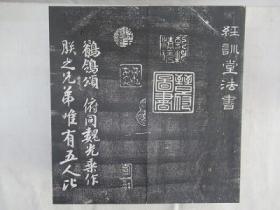 經訓堂法書
鶺鴒頌 俯同魏光乘作
朕之兄弟唯有五人比